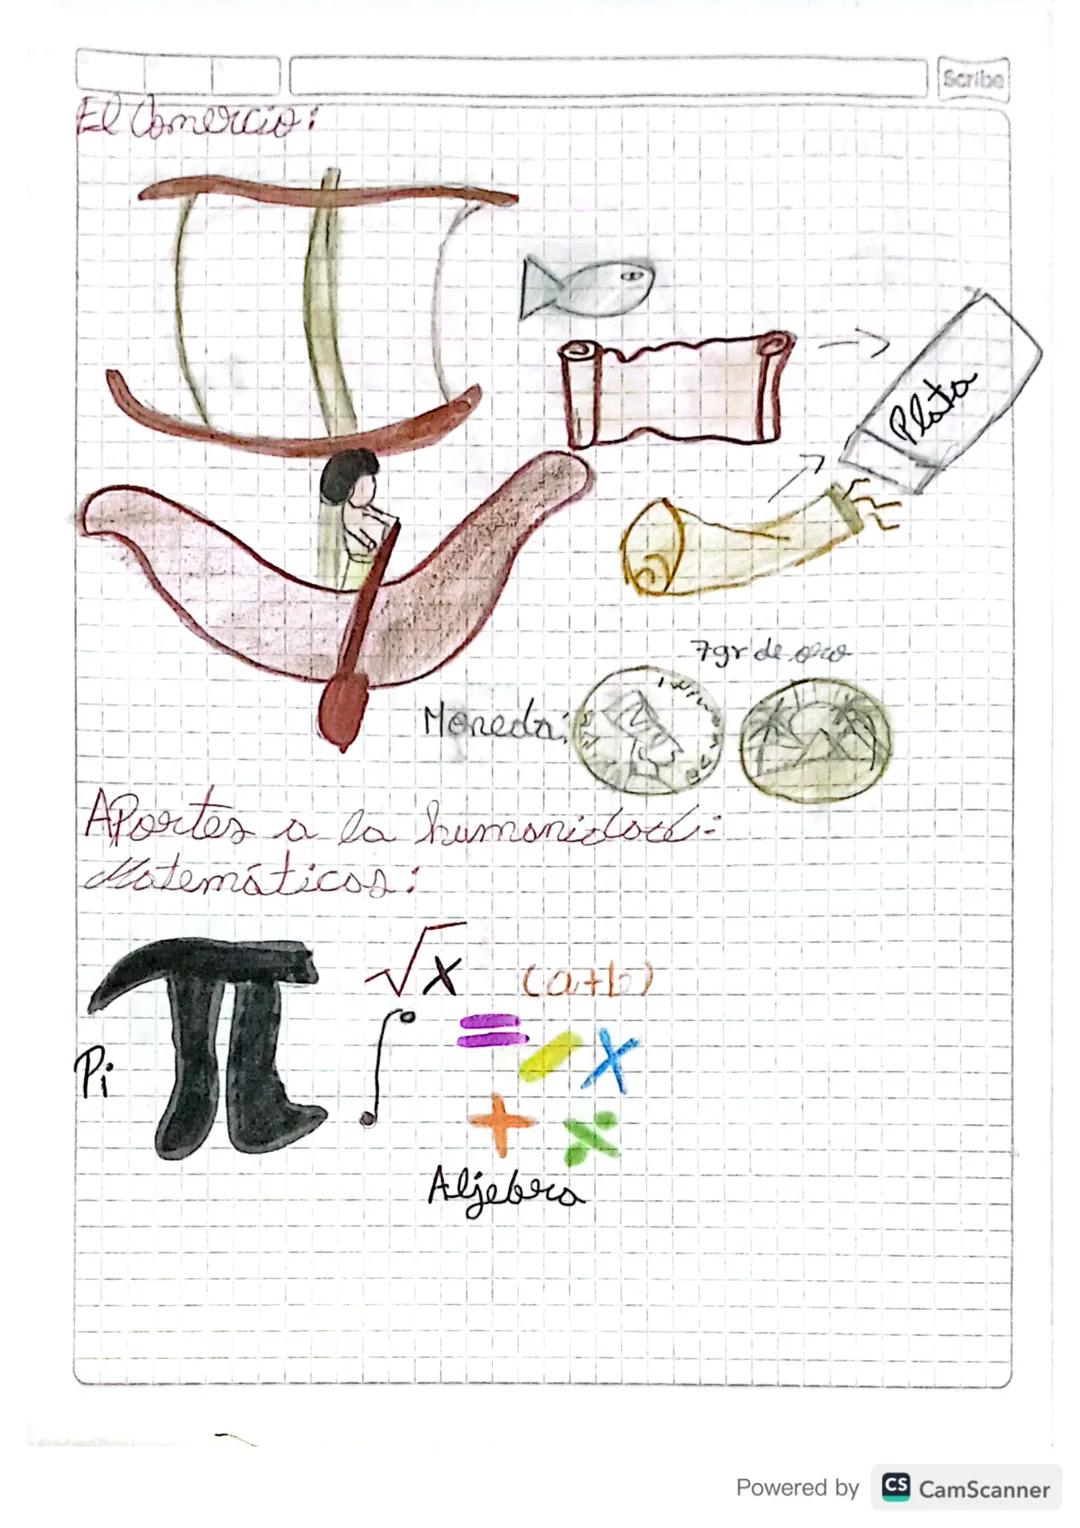 Scribe
El Comercio:
Plata
7gr de oro
Moneda:
APortes a la humanidad:
Matemáticas:
√x (a+b)
Pi
Aljebra
Powered by CS CamScanner